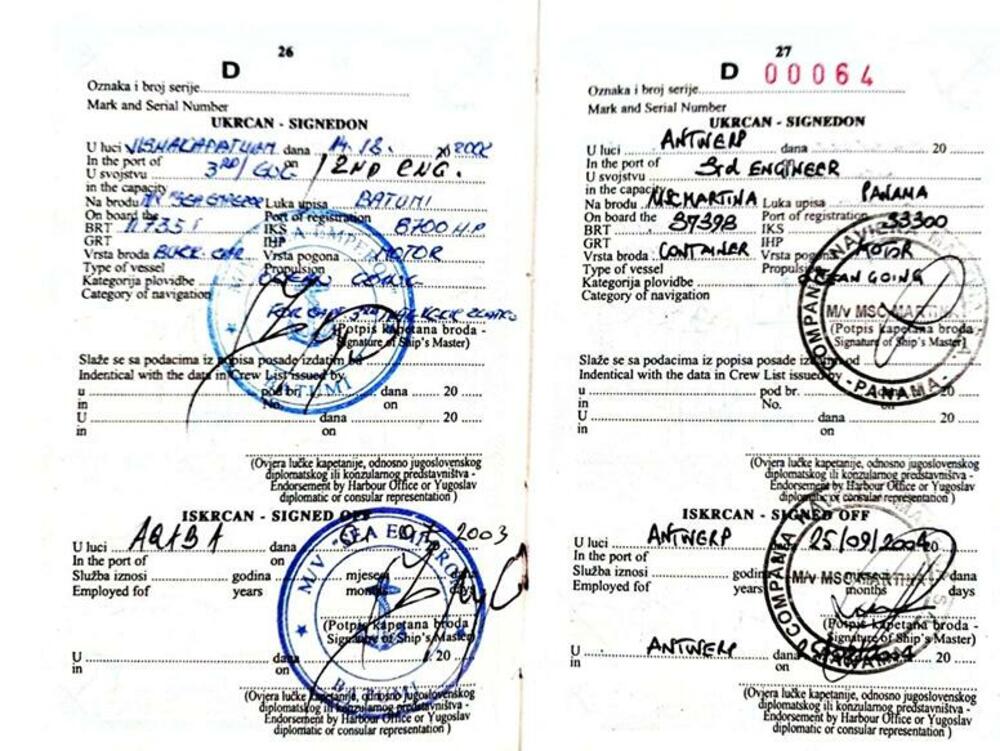 26
D
Oznaka i broj serije
Mark and Serial Number
UKRCAN - SIGNEDON
U luci VISHAKAPATNAM dana 14.12. 2002
In the port of on
U svojstvu 3RD/ENG / 2ND ENG.
in the capacity
Na brodu M/V SEA EMPEROR Luka upisa BATUMI
On board the Port of registration
BRT 117351 IKS 8700 H.P
GRT IHP
Vrsta broda BULK. Vrsta pogona MOTOR
Type of vessel Propulsion
Kategorija plovidbe OCEAN GOING
Category of navigation
(Potpis kapetana broda -
Signature of Ship's Master)
Slaže se sa podacima iz popisa posade izdatim od
Indentical with the data in Crew List issued by
u pod br. dana 20
in No. on
U dana 20
in on
(Ovjera lučke kapetanije, odnosno jugoslovenskog
diplomatskog ili konzularnog predstavništva -
Endorsement by Harbour Office or Yugoslav
diplomatic or consular representation )
ISKRCAN - SIGNED OFF
U luci AQABA dana 2003
In the port of on
Služba iznosi godina mjeseci
Employed fof years months days
M/V SEA EMPEROR
BATUMI
(Potpis kapetana broda -
Signature of Ship's Master)
U dana 20
in on
(Ovjera lučke kapetanije, odnosno jugoslovenskog
diplomatskog ili konzularnog predstavništva -
Endorsement by Harbour Office or Yugoslav
diplomatic or consular representation )
27
D 00064
Oznaka i broj serije
Mark and Serial Number
UKRCAN - SIGNEDON
U luci ANTWERP dana 20
In the port of on
U svojstvu 3rd ENGINEER
in the capacity
Na brodu MSC MARTINA Luka upisa PANAMA
On board the Port of registration
BRT 37398 IKS 33300
GRT IHP
Vrsta broda CONTAINER Vrsta pogona MOTOR
Type of vessel Propulsion
Kategorija plovidbe OCEAN GOING
Category of navigation
M/v MSC MARTINA
COMPANIA PANAMA
(Potpis kapetana broda -
Signature of Ship's Master)
Slaže se sa podacima iz popisa posade izdatim od
Indentical with the data in Crew List issued by
u pod br. 20
in No.
U dana 20
in on
(Ovjera lučke kapetanije, odnosno jugoslovenskog
diplomatskog ili konzularnog predstavništva -
Endorsement by Harbour Office or Yugoslav
diplomatic or consular representation )
ISKRCAN - SIGNED OFF
U luci ANTWERP 25/09/2004 20
In the port of
Služba iznosi godina dana
Employed fof years months days
M/v MSC MARTINA
COMPANIA PANAMA
(Potpis kapetana broda -
Signature of Ship's Master)
U ANTWERP dana 20
in on
(Ovjera lučke kapetanije, odnosno jugoslovenskog
diplomatskog ili konzularnog predstavništva -
Endorsement by Harbour Office or Yugoslav
diplomatic or consular representation )